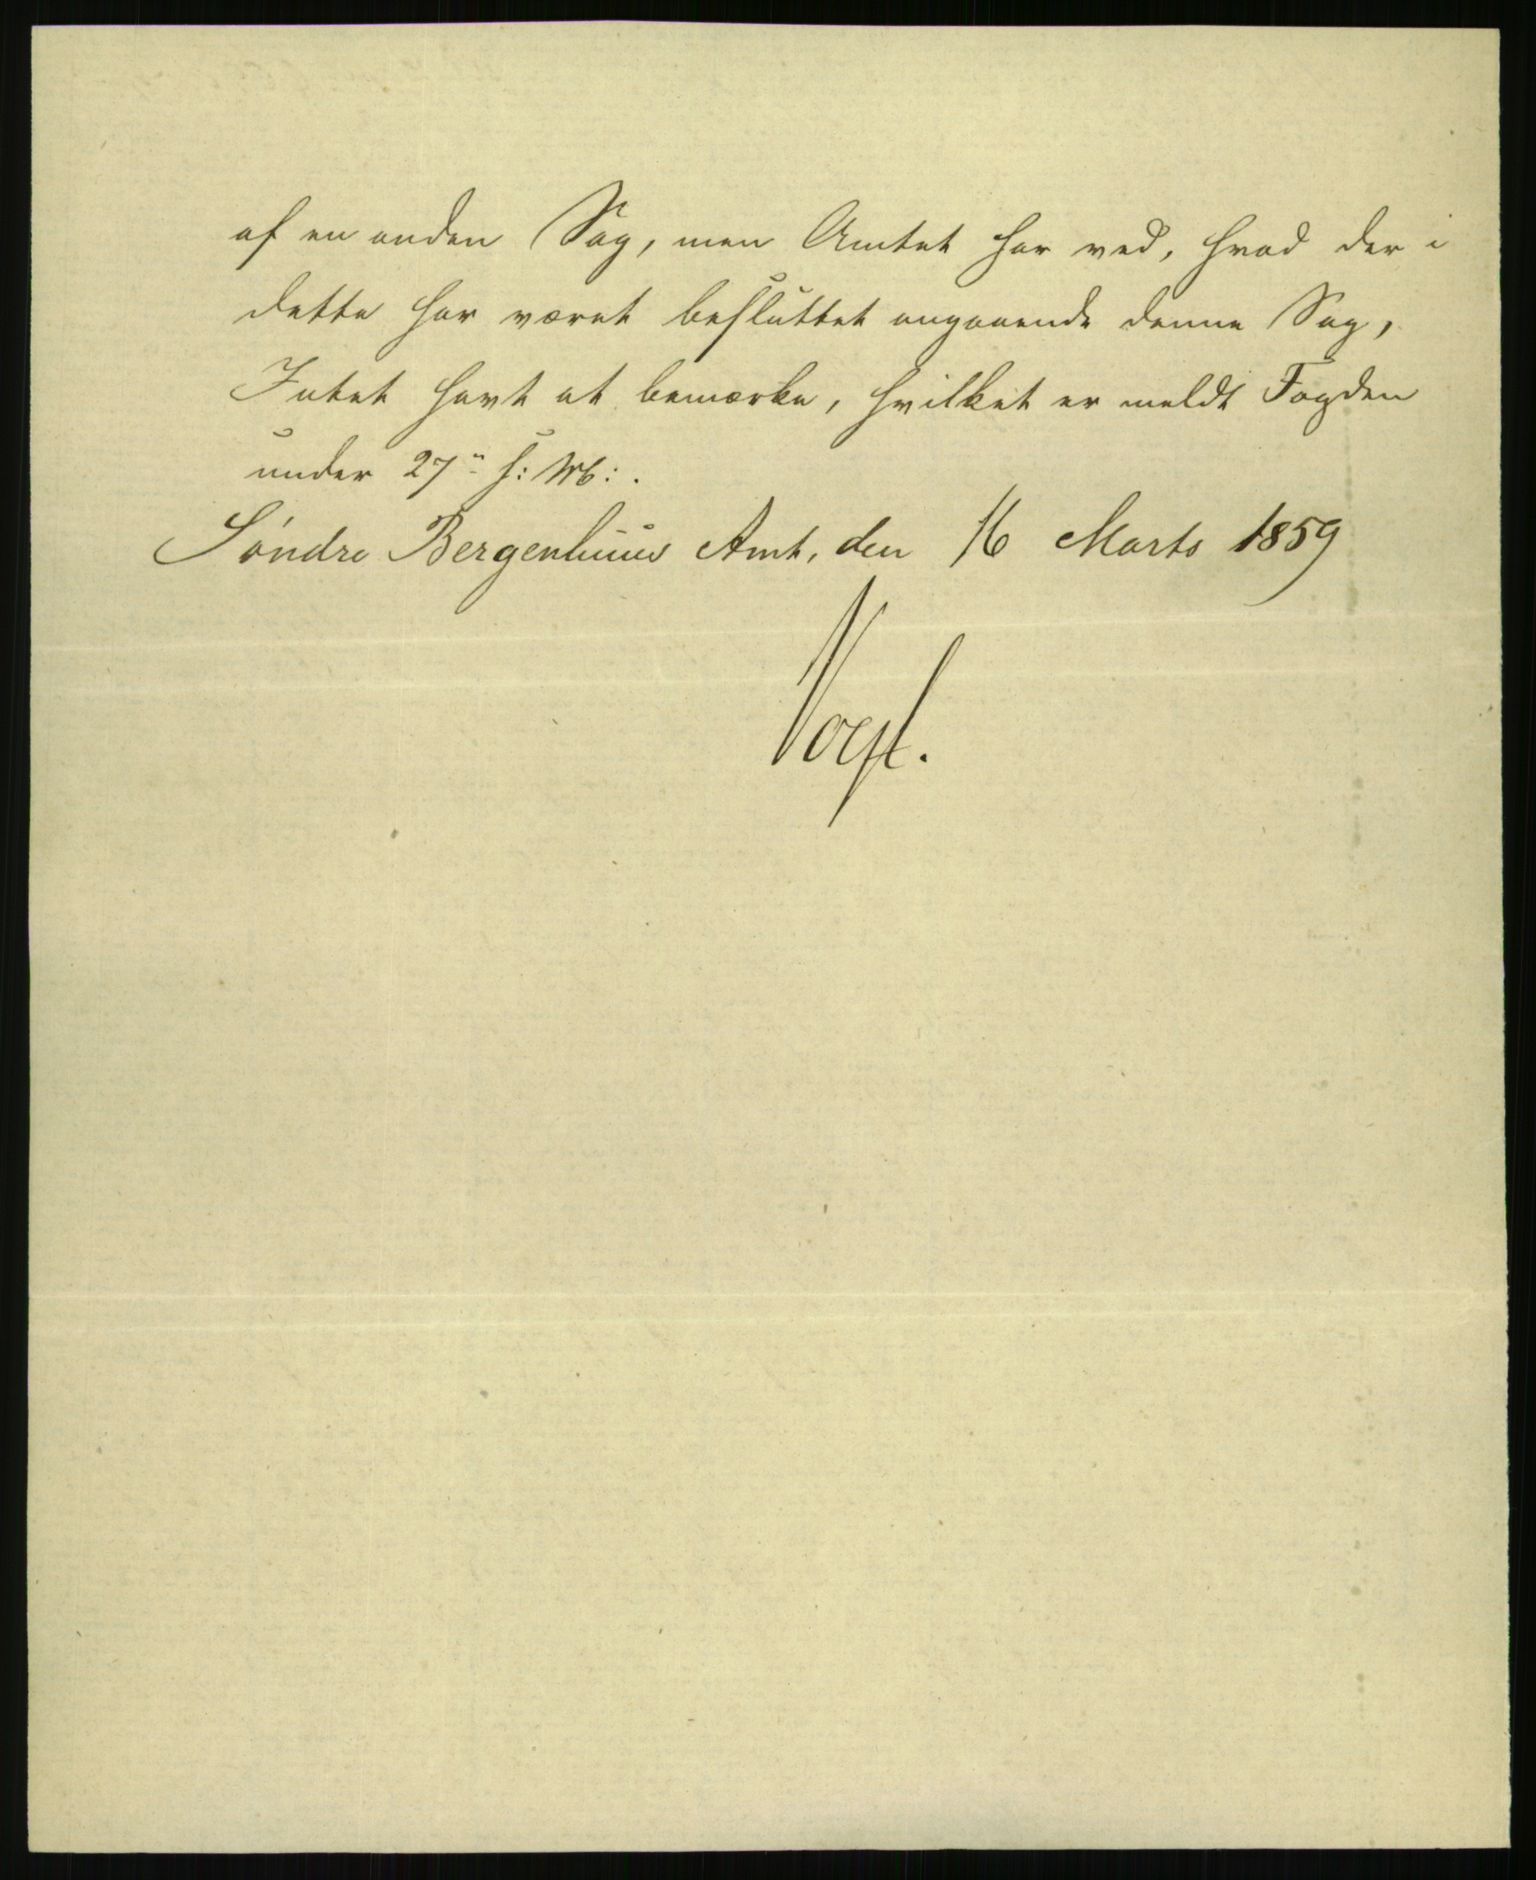 af en anden Sag, men Amtet har ved, hvad der i
dette har været besluttet angaaende denne Sag,
Intet havt at bemærke, hvilket er meldt Fogden
under 27de f: M:.
Søndre Bergenhuus Amt, den 16 Marts 1859
Vogt.